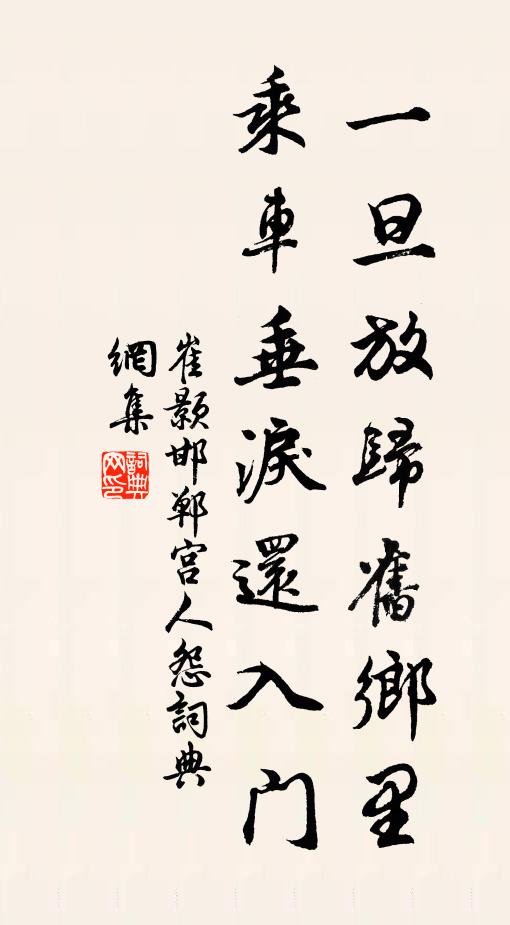 一旦放歸舊鄉里
乘車垂淚還入门
崔颢邯鄲宫人怨詞典
網集
詞典网印